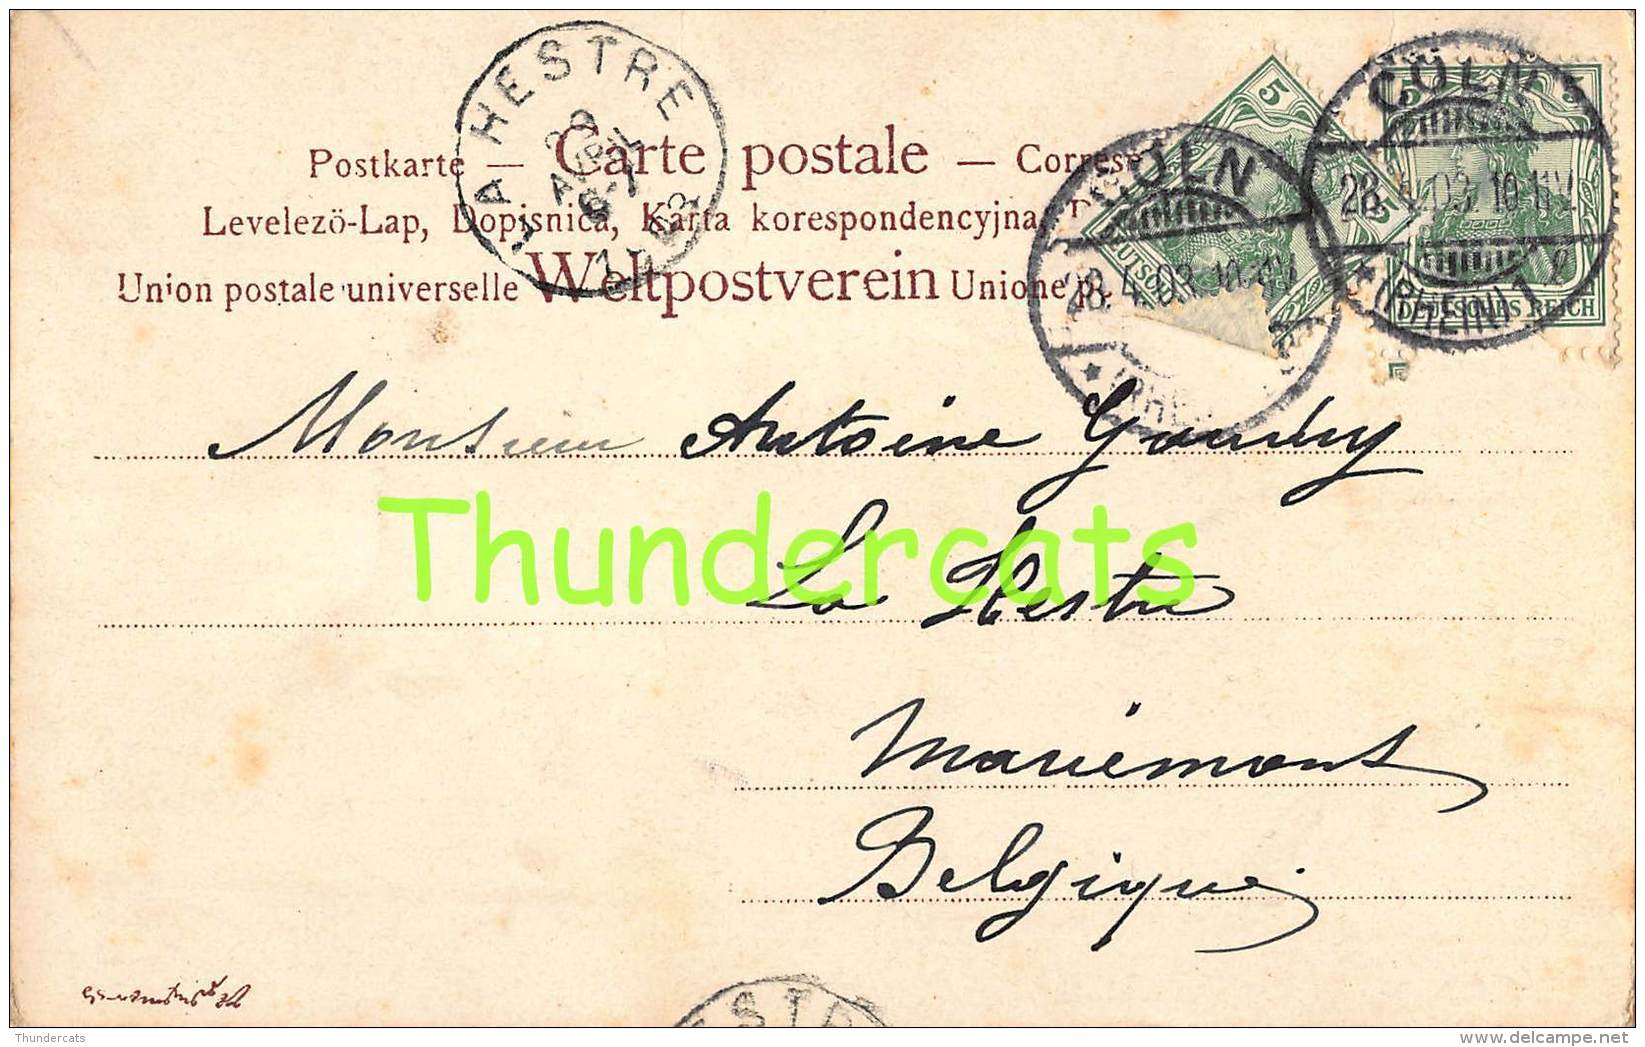 LA HESTRE
29
AVRIL
6-7
1903
CÖLN
28.4.03.10-11V.
(RHEIN) 1
CÖLN
28.4.03.10-11V.
5
5
DEUTSCHES REICH
Postkarte — Carte postale —
Levelezö-Lap, Dopisnica, Karta korespondencyjna,
Union postale universelle Weltpostverein Unione
Monsieur Antoine
Thundercats
La Hestre
Mariémont
Belgique
ESTR
Thundercats
www.delcampe.net